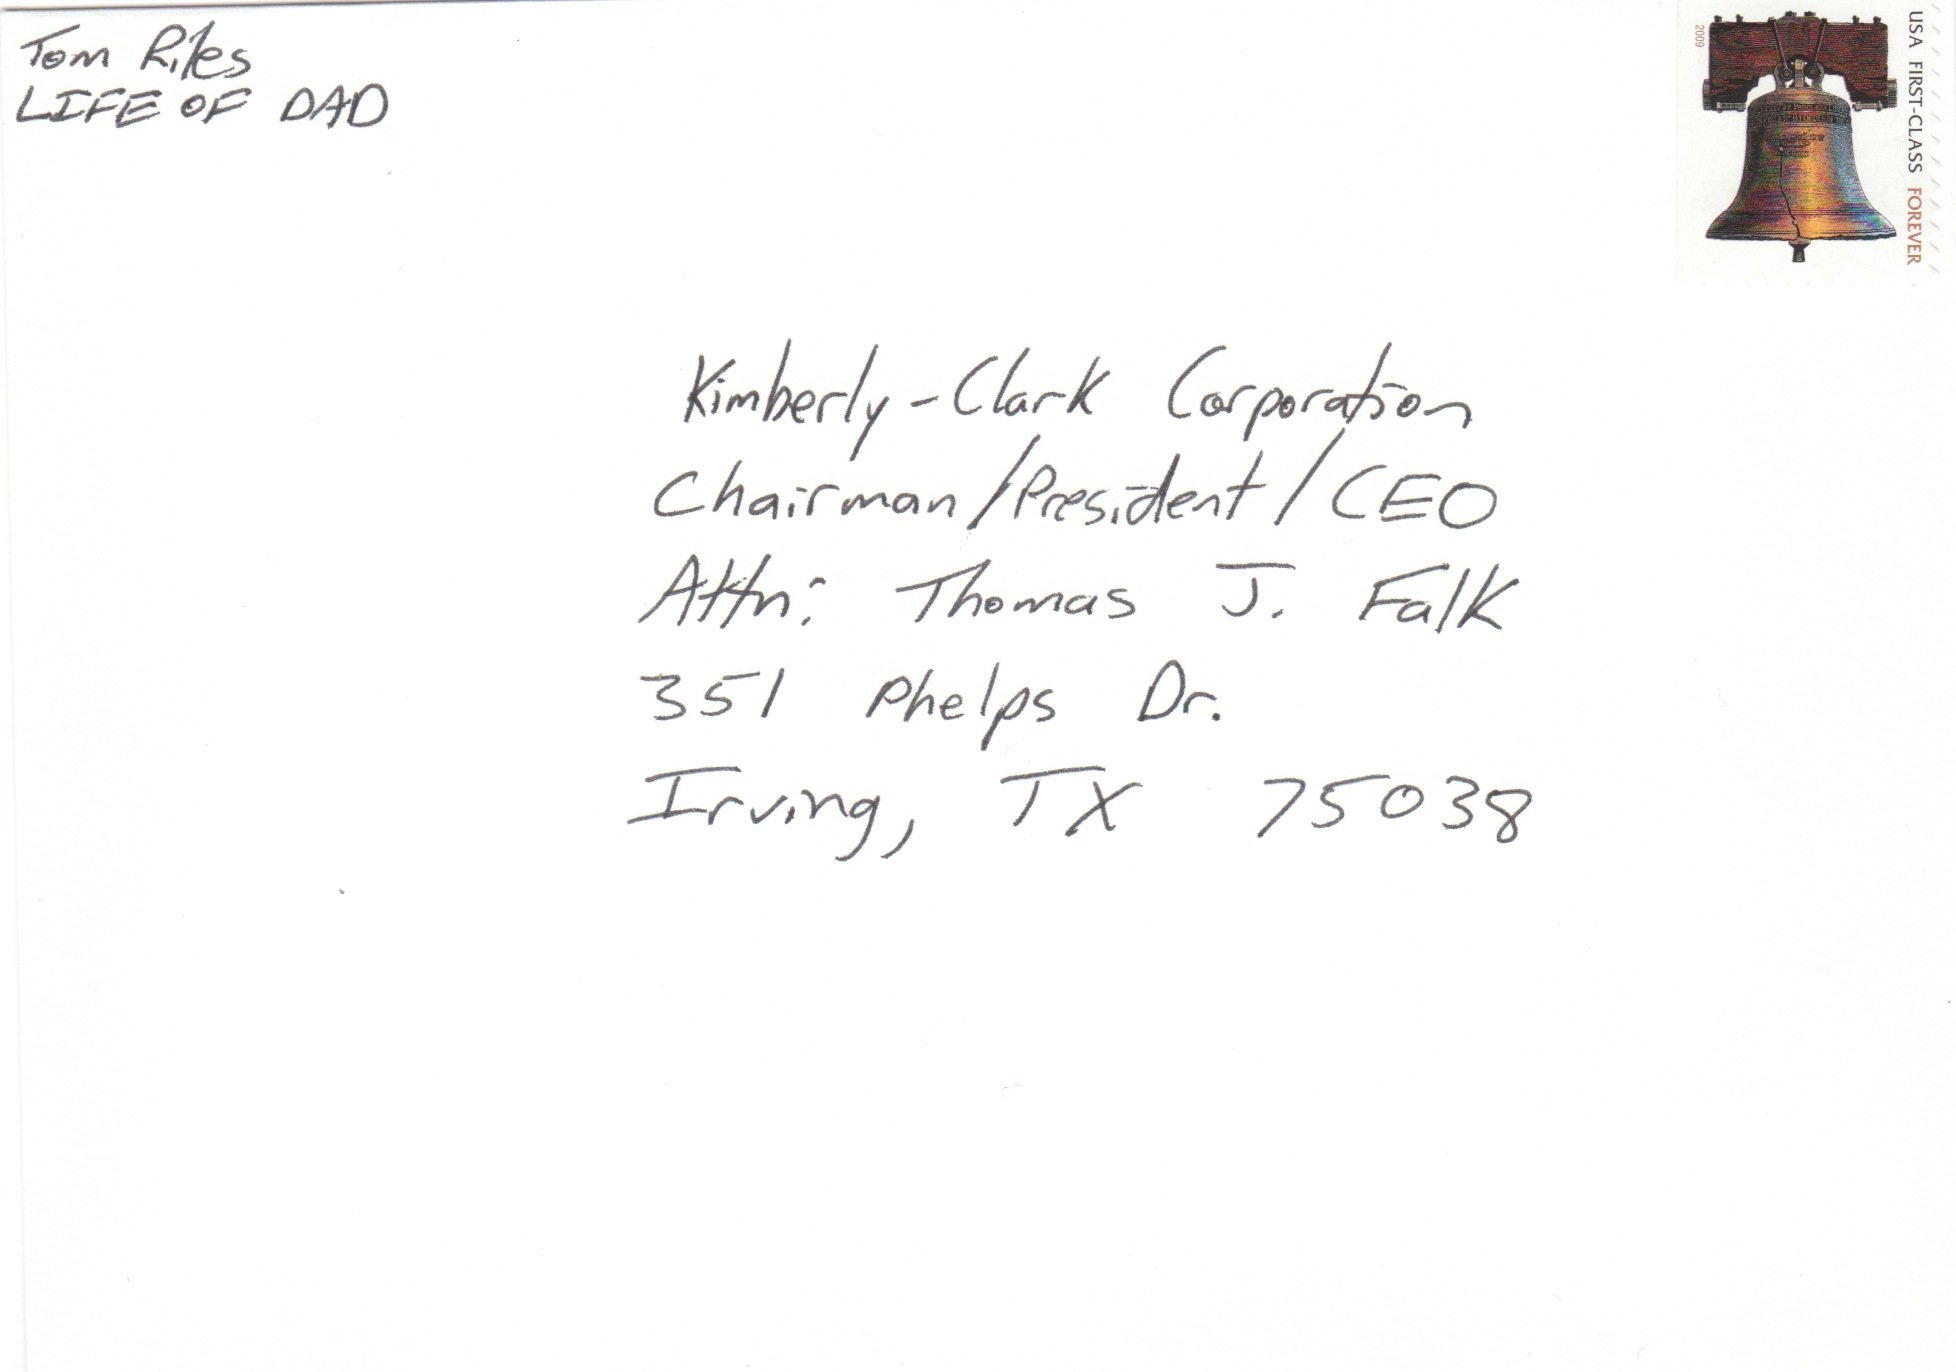 Tom Riles
LIFE OF DAD
2009
USA FIRST-CLASS FOREVER
Kimberly-Clark Corporation
Chairman/President/CEO
Attn: Thomas J. Falk
351 Phelps Dr.
Irving, TX 75038